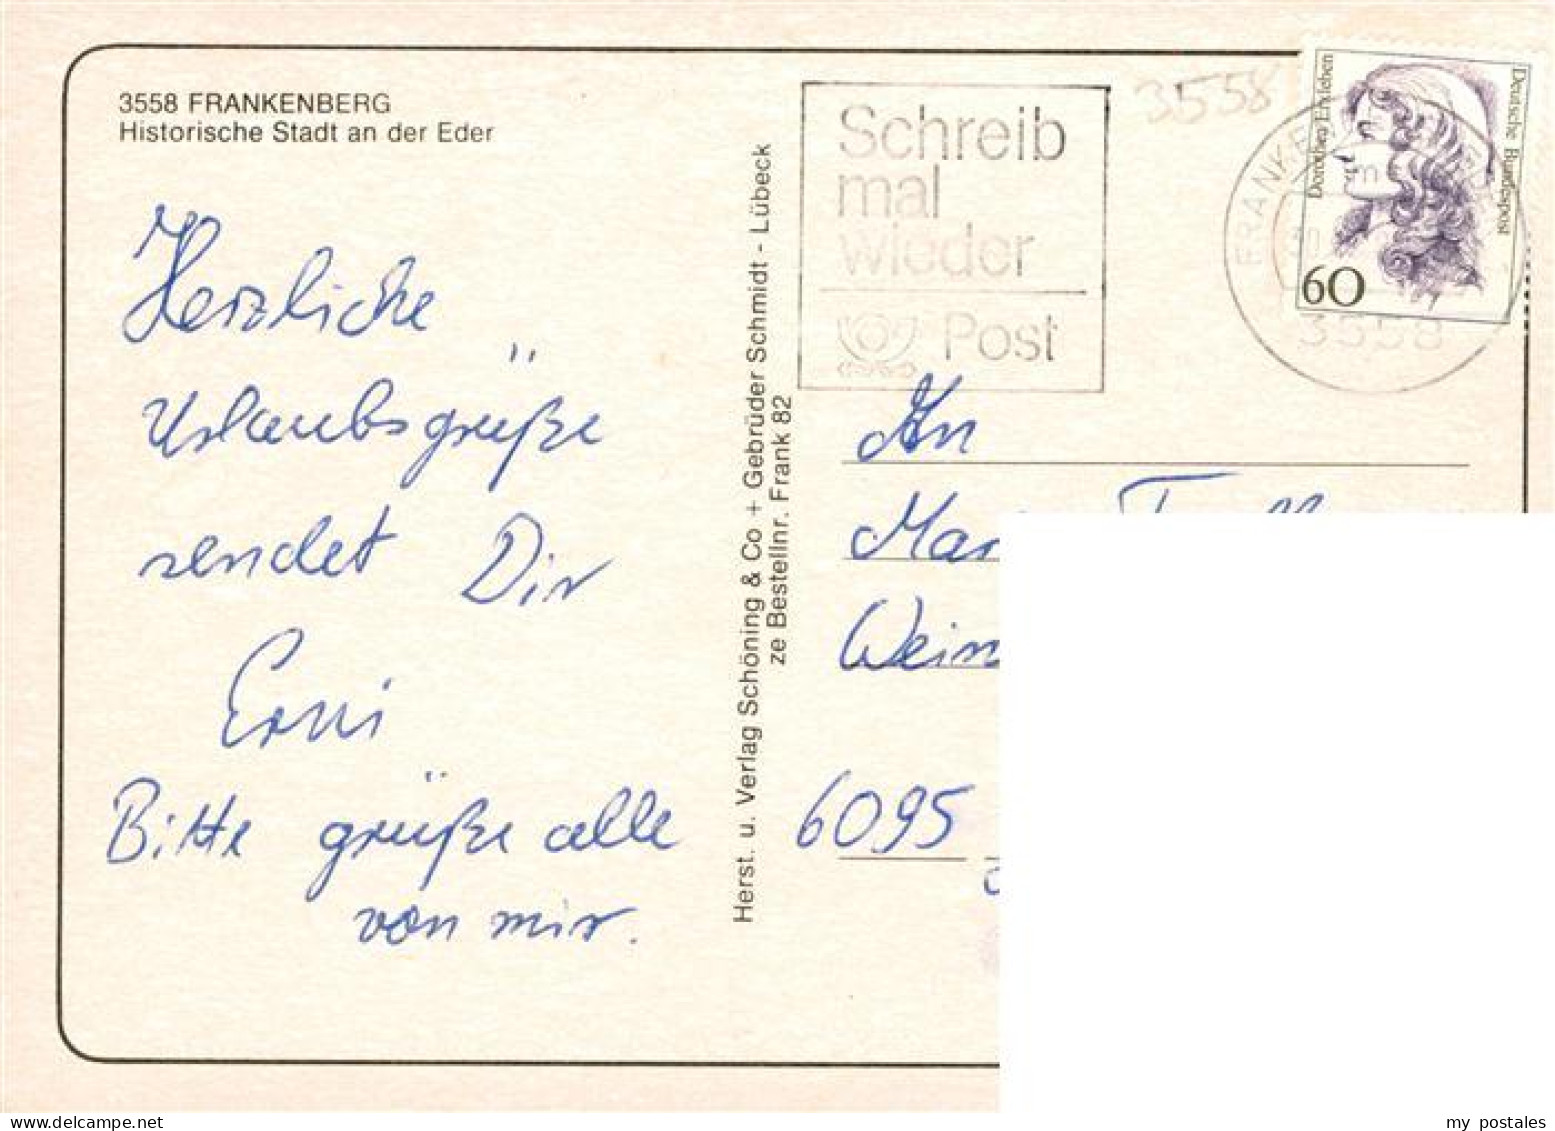 3558 FRANKENBERG
Historische Stadt an der Eder
Herzliche
Urlaubsgrüße
sendet Dir
Erni
Bitte grüße alle
von mir.
Herst. u. Verlag Schöning & Co + Gebrüder Schmidt - Lübeck
ze Bestellnr. Frank 82
Schreib
mal
wieder
Post
3558
Deutsche Bundespost
Dorothea Erxleben
60
3558
An
6095
my postales